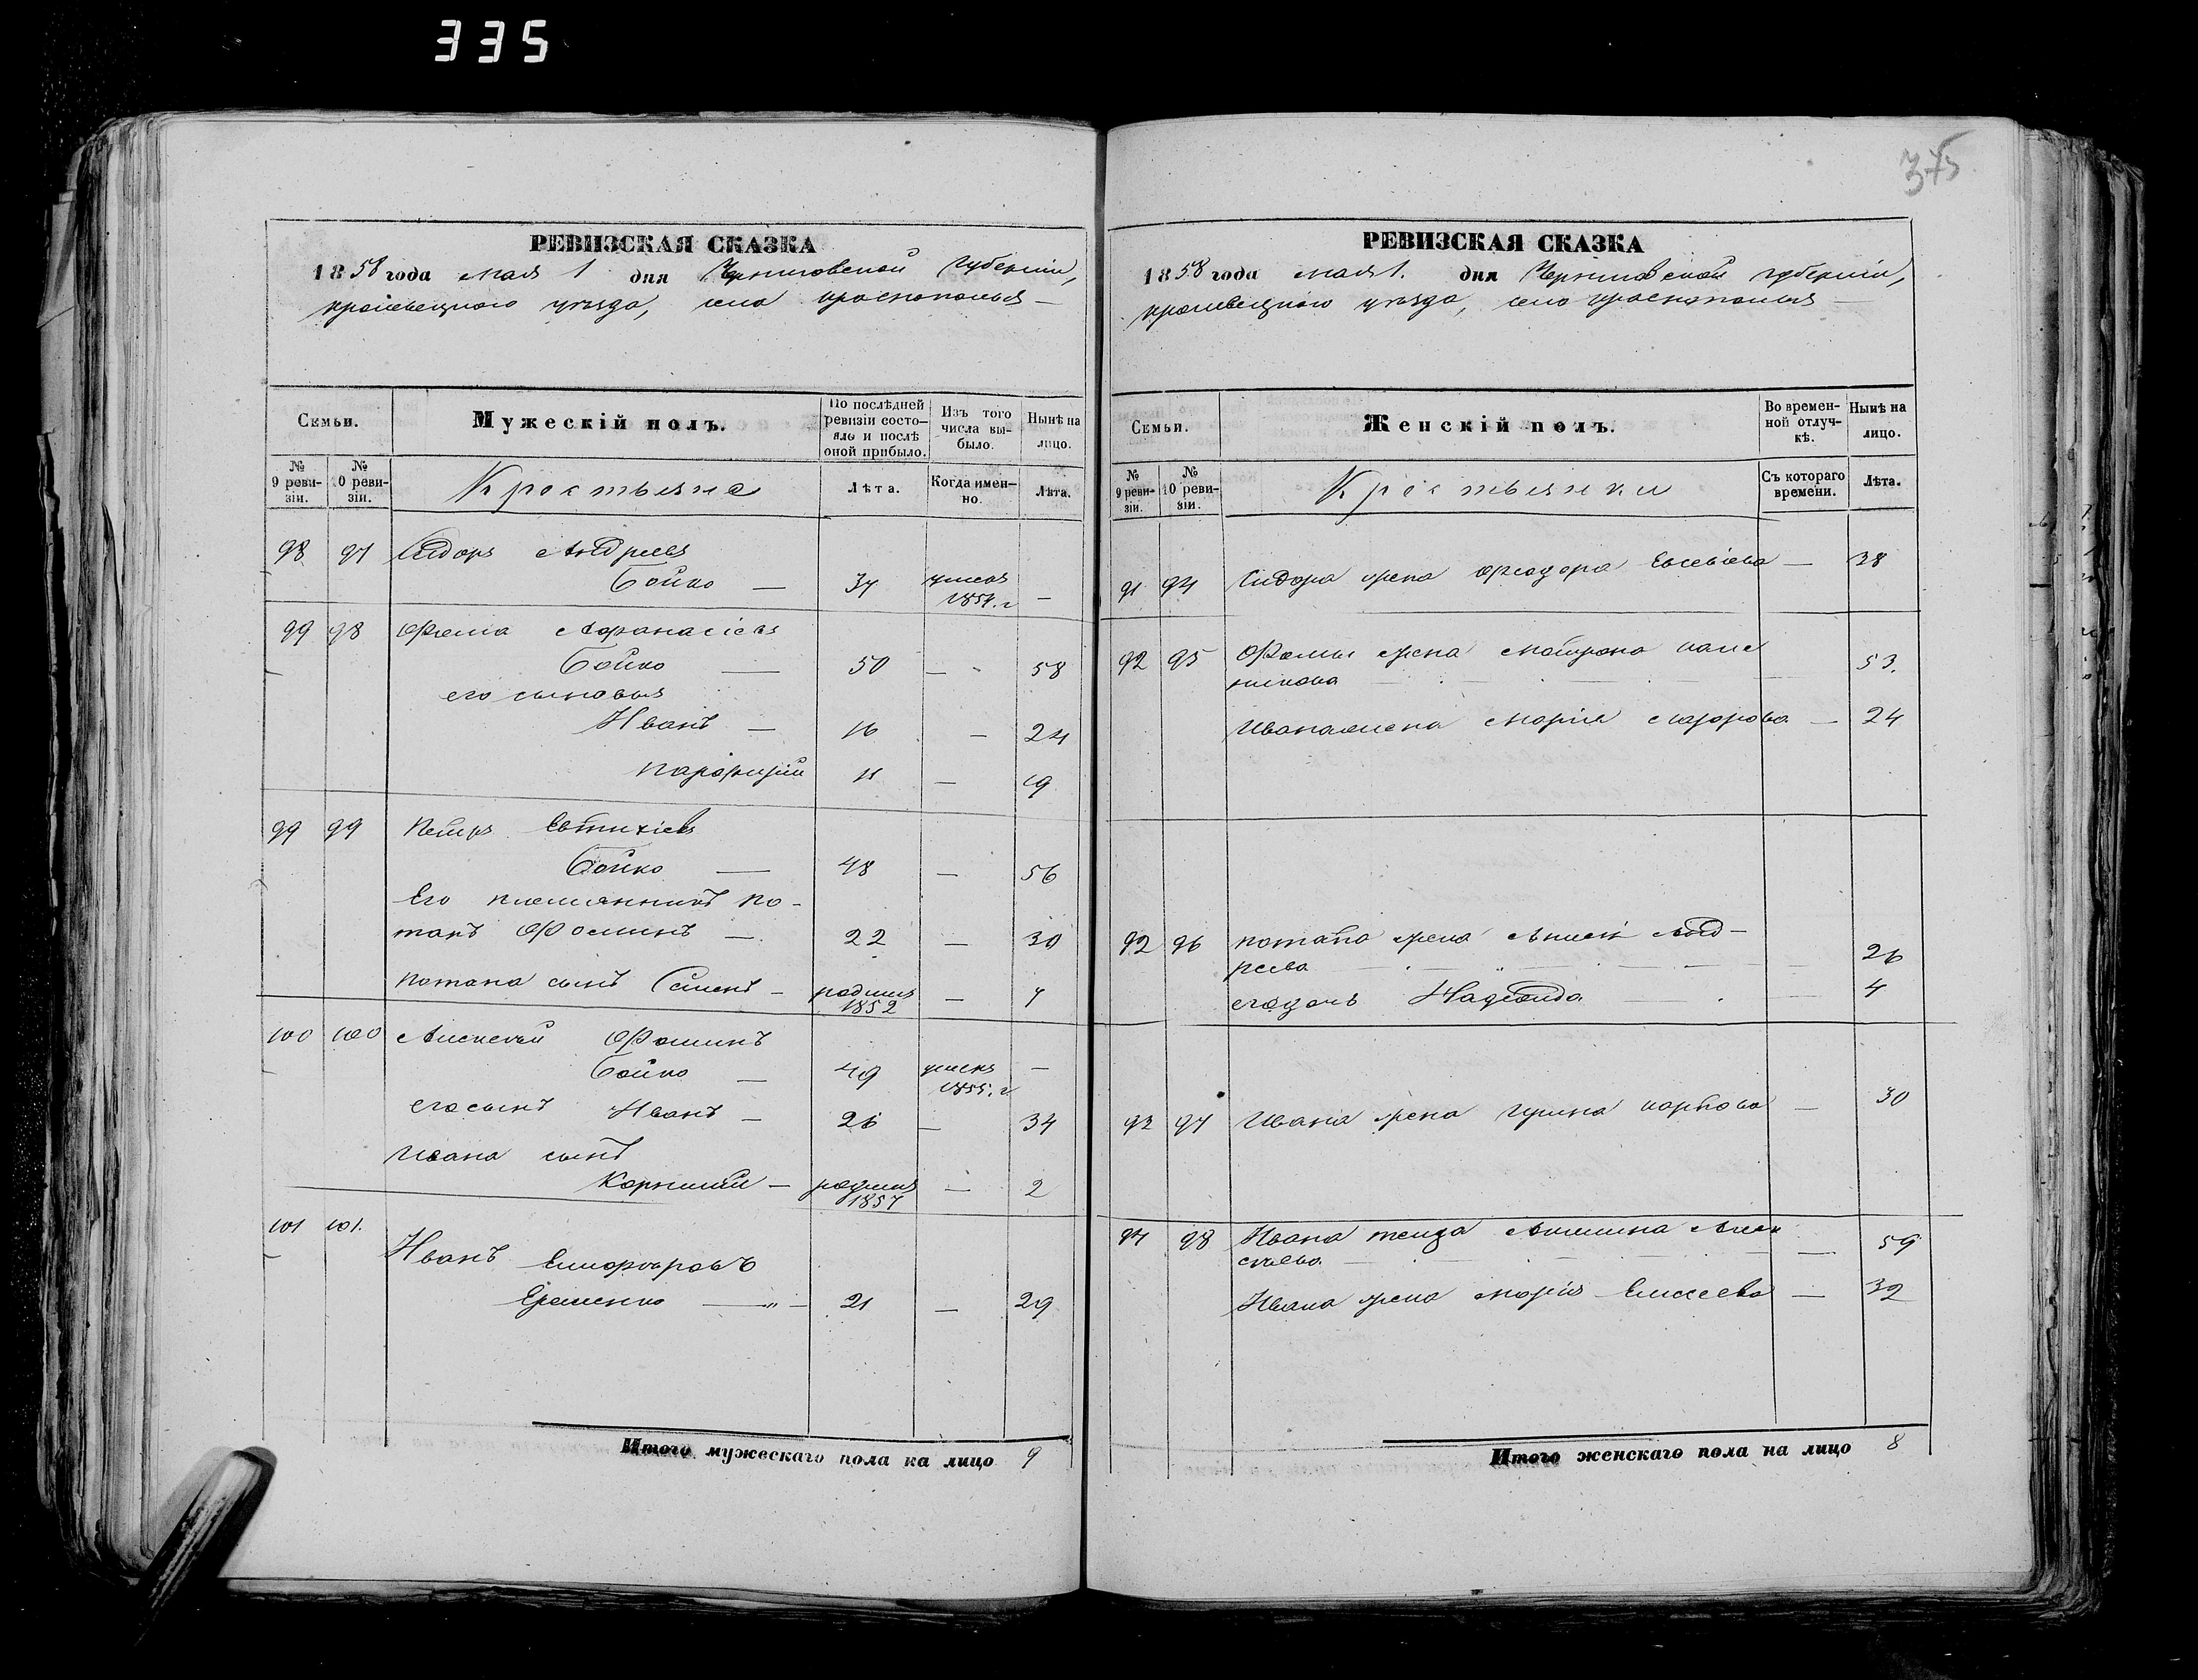 335
375
РЕВИЗСКАЯ СКАЗКА
1858 года мая 1 дня Черниговской губернии,
кролевецкого уѣзда, села краснополья —
Семьи.
Мужескій полъ.
По послѣдней ревизіи состояло и послѣ оной прибыло.
Изъ того числа выбыло.
Нынѣ на лицо.
№ 9 ревизіи.
№ 10 ревизіи.
Крестьяне
Лѣта.
Когда именно.
Лѣта.
98 97 Сидоръ Андреевъ
Бойко — 37 умеръ 1857. г —
99 98 Фома Афанасіевъ
Бойко — 50 — 58
его сыновья
Иванъ — 16 — 24
11 — 19
99 99 Петръ Евтихіевъ
Бойко — 48 — 56
Его племянникъ По-
тапъ Фоминъ — 22 — 30
Потапа сынъ Семенъ — родился 1852 — 7
100 100 Алексѣй Фоминъ
Бойко — 49 умеръ 1855. г —
его сынъ Иванъ — 26 — 34
Ивана сынъ
Корнилій — родился 1857 — 2
101 101. Иванъ
Еременко — „ — 21 — 29
Итого мужескаго пола на лицо 9
РЕВИЗСКАЯ СКАЗКА
1858 года мая 1. дня Черниговской губерніи,
кролевецкого уѣзда, села краснополья —
Семьи.
Женскій полъ.
Во временной отлучкѣ.
Нынѣ на лицо.
№ 9 ревизіи.
№ 10 ревизіи.
Крестьянки
Съ котораго времени.
Лѣта.
91 94 Сидора жена Евсевіева — 38
92 95 Фомы жена Матрона
53.
Ивана жена Марія — 24
92 96 Потапа жена Анд-
реева 26
его дочь 4
93 97 Ивана жена Ирина карпова — 30
94 98 Ивана Алек
сѣева — 59
Ивана жена Марія Елисеева — 32
Итого женскаго пола на лицо 8